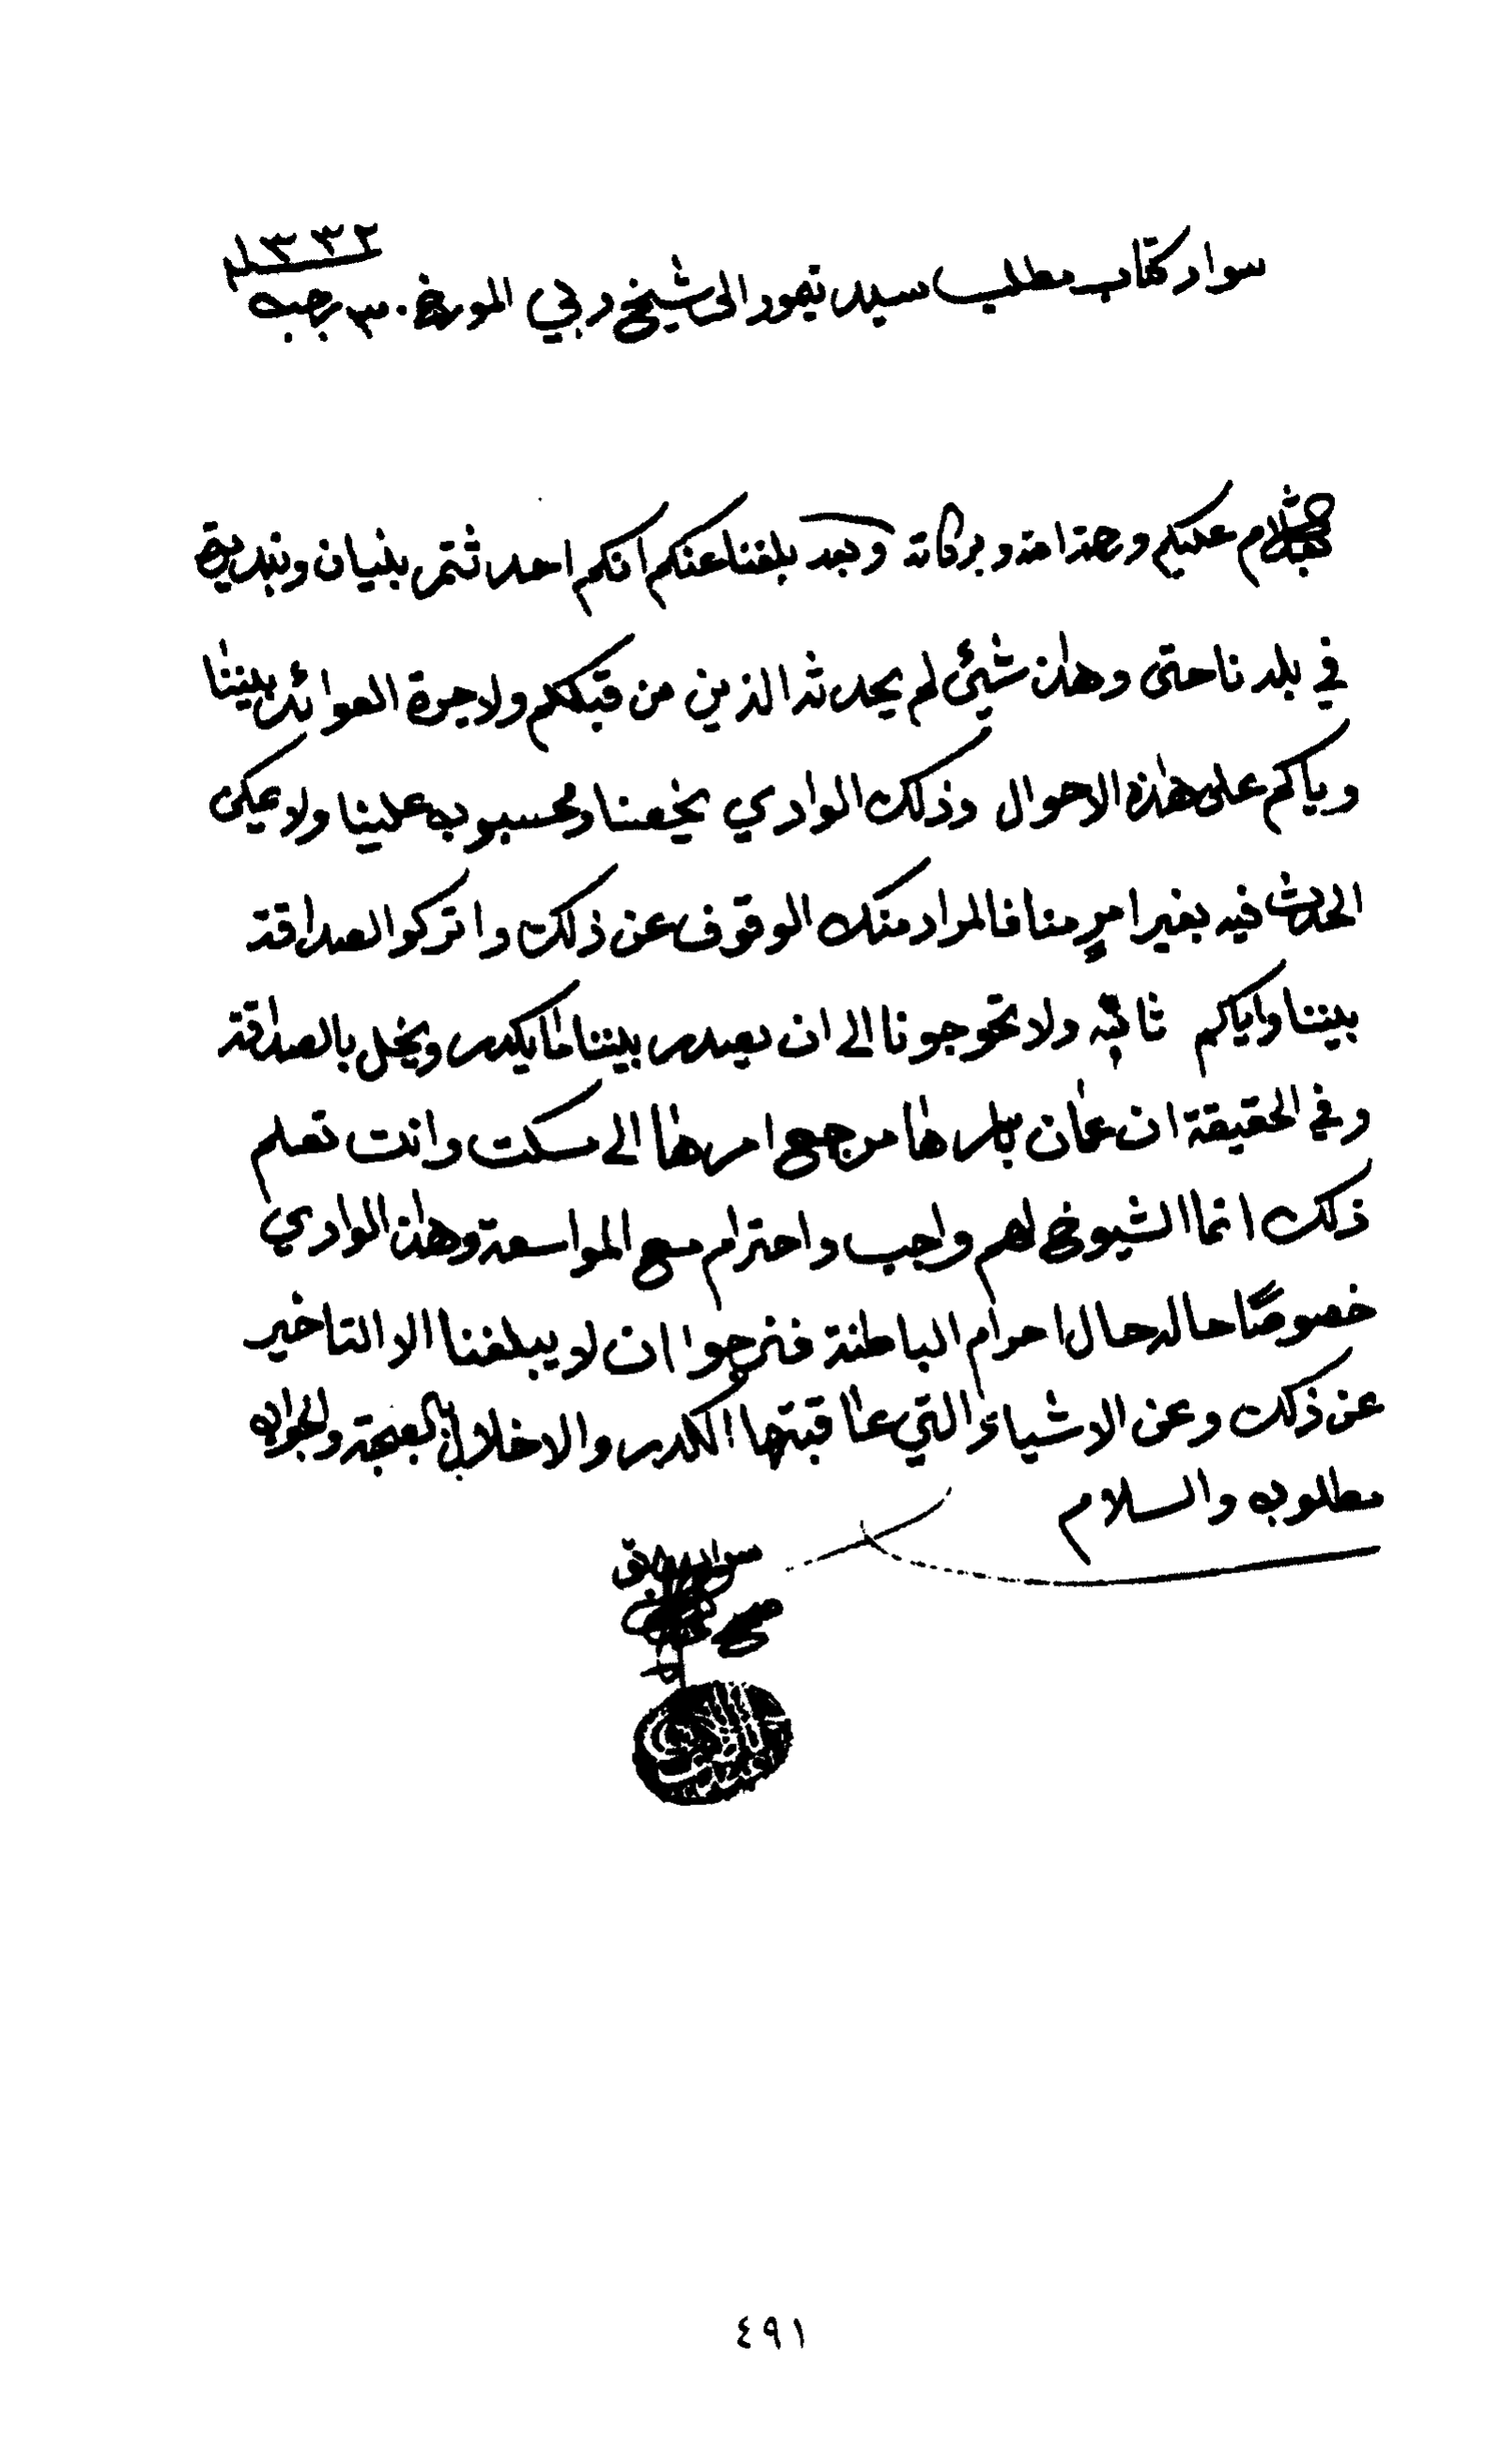 سواد كتاب مطلب سيد تيمور الى شيخ دبي المورخ ٣٠ رجب
١٣٣٢
السلام عليكم ورحمة الله وبركاته وبعد بلغنا عنكم انكم احدثتم بنيان وبندية
في بلدنا حتى وهذا شيئ لم يحدثه الذين من قبلكم ولا جرة العوائد بيننا
وياكم على هذه الاحوال وذلك الوادي يخصنا ومحسوب علينا ولا يمكن
الحدث فيه بغير امرٍ منا فالمراد منك الوقوف عن ذلك واتركوا الصداقة
بيننا واياكم ثابته ولا تحوجونا الى ان يصدر بيننا ما يكدر ويخل بالصداقة
وفي الحقيقة ان عمان بلدها مرجع امرها الى مسكت وانت تعلم
ذلك انما الشيوخ لهم واجب واحترام مع المواسعة وهذا الوادي
خصوصًا حاله حال احرام الباطنة فنرجوا ان لا يبلغنا الا التاخير
عن ذلك وعن الاشياء التي عاقبتها الكدر والاخلال بالصحبة والجواب
مطلوب والسلام
٤٩١